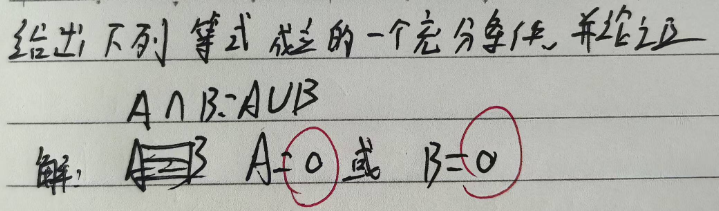 给出下列等式成立的一个充分条件,并论证
A∩B=A∪B
解: A=B A=0 或 B=0